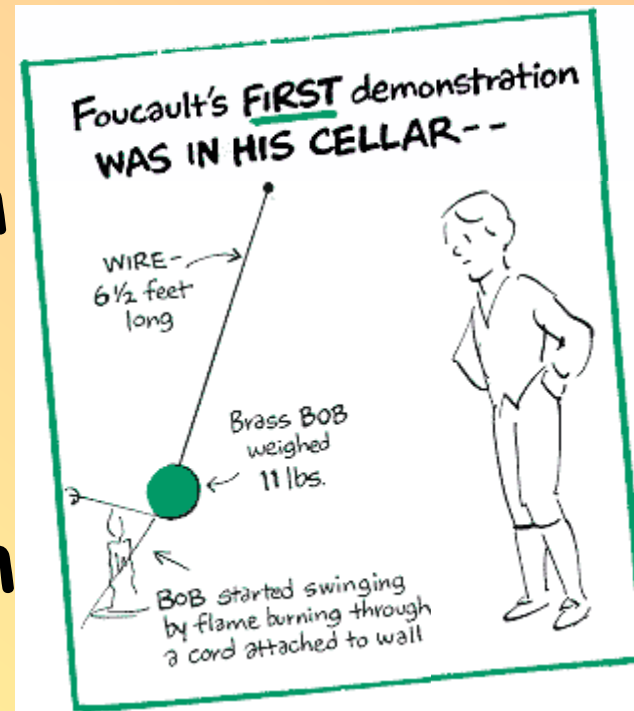 Foucault's FIRST demonstration
WAS IN HIS CELLAR--
WIRE-
6½ feet
long
Brass BOB
weighed
11 lbs.
BOB started swinging
by flame burning through
a cord attached to wall